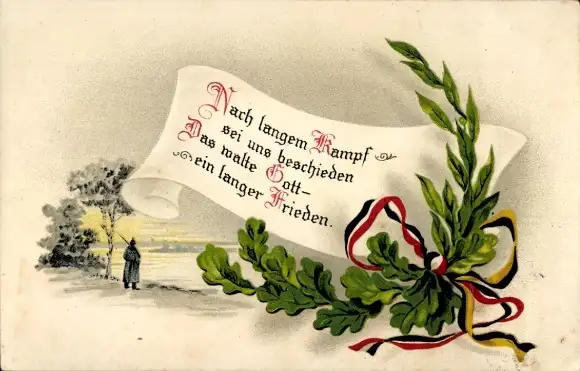 Nach langem Kampf
sei uns beschieden
Das walte Gott–
ein langer Frieden.